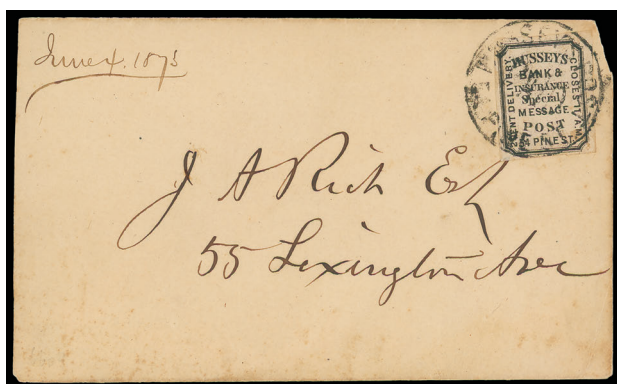 June 4. 1873
HUSSEY'S
BANK &
INSURANCE
Special
MESSAGE
POST
54 PINE ST.
2 CENT DELIVERY
CLOSES 11 A.M.
J A Rich Esq
55 Lexington Ave